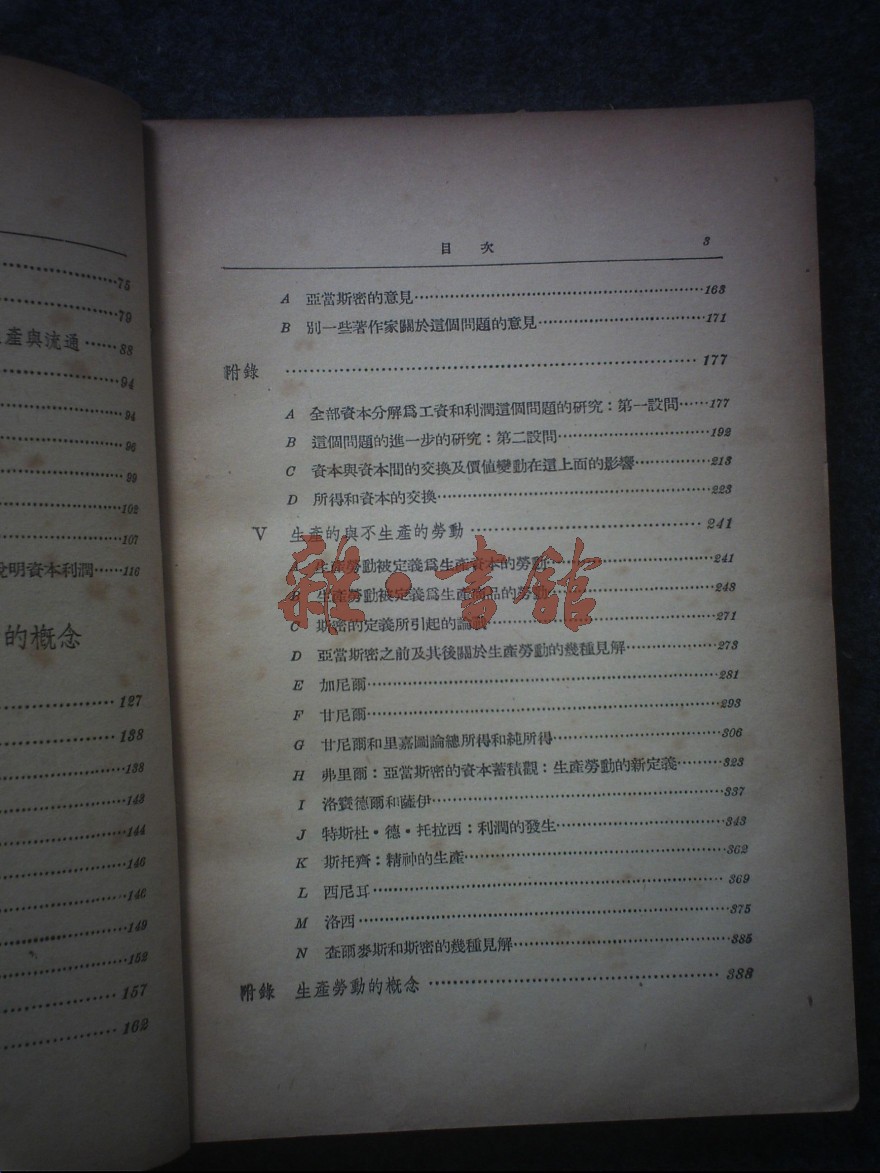 75
79
產與流通……88
94
94
96
99
102
107
說明資本利潤……116
的概念
127
138
138
143
144
146
146
149
152
157
162
目 次 3
A 亞當斯密的意見……163
B 別一些著作家關於這個問題的意見……171
附錄 ……177
A 全部資本分解爲工資和利潤這個問題的研究：第一設問……177
B 這個問題的進一步的研究：第二設問……192
C 資本與資本間的交換及價值變動在這上面的影響……213
D 所得和資本的交換……223
V 生產的與不生產的勞動……241
A 生產勞動被定義爲生產資本的勞動……241
B 生產勞動被定義爲生產商品的勞動……248
C 斯密的定義所引起的論戰……271
D 亞當斯密之前及其後關於生產勞動的幾種見解……273
E 加尼爾……281
F 甘尼爾……293
G 甘尼爾和里嘉圖論總所得和純所得……306
H 弗里爾：亞當斯密的資本蓄積觀：生產勞動的新定義……323
I 洛竇德爾和薩伊……337
J 特斯杜·德·托拉西：利潤的發生……343
K 斯托齊：精神的生產……362
L 西尼耳……369
M 洛西……375
N 查爾麥斯和斯密的幾種見解……385
附錄 生產勞動的概念……388
雜·書館